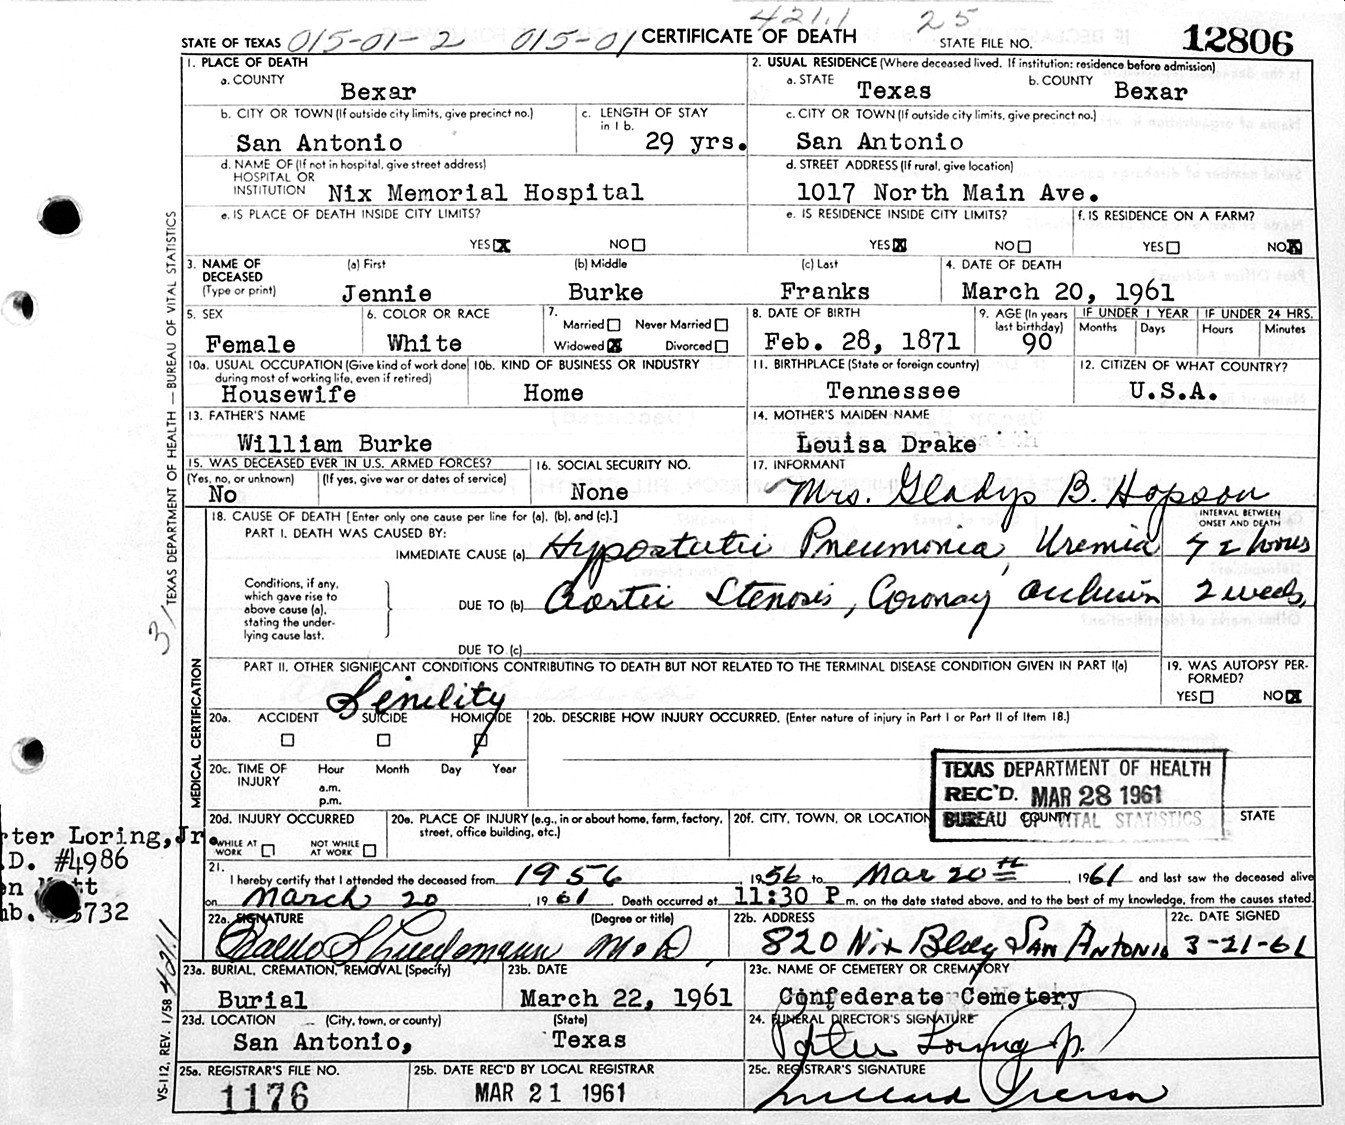 421.1 25
STATE OF TEXAS 015-01-2 015-01 CERTIFICATE OF DEATH STATE FILE NO. 12806
1. PLACE OF DEATH
a. COUNTY
Bexar
2. USUAL RESIDENCE (Where deceased lived. If institution: residence before admission)
a. STATE Texas b. COUNTY Bexar
b. CITY OR TOWN (If outside city limits, give precinct no.)
San Antonio
c. LENGTH OF STAY in 1 b.
29 yrs.
c. CITY OR TOWN (If outside city limits, give precinct no.)
San Antonio
d. NAME OF (If not in hospital, give street address)
HOSPITAL OR
INSTITUTION Nix Memorial Hospital
d. STREET ADDRESS (If rural, give location)
1017 North Main Ave.
e. IS PLACE OF DEATH INSIDE CITY LIMITS?
YES X NO
e. IS RESIDENCE INSIDE CITY LIMITS?
YES X NO
f. IS RESIDENCE ON A FARM?
YES NO X
3. NAME OF DECEASED (Type or print)
(a) First (b) Middle (c) Last
Jennie Burke Franks
4. DATE OF DEATH
March 20, 1961
5. SEX
Female
6. COLOR OR RACE
White
7.
Married Never Married
Widowed X Divorced
8. DATE OF BIRTH
Feb. 28, 1871
9. AGE (In years last birthday)
90
IF UNDER 1 YEAR IF UNDER 24 HRS.
Months Days Hours Minutes
10a. USUAL OCCUPATION (Give kind of work done during most of working life, even if retired)
Housewife
10b. KIND OF BUSINESS OR INDUSTRY
Home
11. BIRTHPLACE (State or foreign country)
Tennessee
12. CITIZEN OF WHAT COUNTRY?
U.S.A.
13. FATHER'S NAME
William Burke
14. MOTHER'S MAIDEN NAME
Louisa Drake
15. WAS DECEASED EVER IN U.S. ARMED FORCES?
(Yes, no, or unknown) (If yes, give war or dates of service)
No
16. SOCIAL SECURITY NO.
None
17. INFORMANT
Mrs. Gladys B. Hopson
18. CAUSE OF DEATH [Enter only one cause per line for (a), (b), and (c).]
INTERVAL BETWEEN ONSET AND DEATH
PART I. DEATH WAS CAUSED BY:
IMMEDIATE CAUSE (a) Hypostatic Pneumonia, Uremia 72 hours
Conditions, if any, which gave rise to above cause (a), stating the underlying cause last.
DUE TO (b) Aortic Stenosis, Coronary occlusion 2 weeks
DUE TO (c)
PART II. OTHER SIGNIFICANT CONDITIONS CONTRIBUTING TO DEATH BUT NOT RELATED TO THE TERMINAL DISEASE CONDITION GIVEN IN PART I(a)
Senility
19. WAS AUTOPSY PERFORMED?
YES NO X
20a. ACCIDENT SUICIDE HOMICIDE
20b. DESCRIBE HOW INJURY OCCURRED. (Enter nature of injury in Part I or Part II of Item 18.)
20c. TIME OF INJURY Hour Month Day Year
a.m.
p.m.
TEXAS DEPARTMENT OF HEALTH
REC'D. MAR 28 1961
BUREAU OF VITAL STATISTICS
20d. INJURY OCCURRED
WHILE AT WORK NOT WHILE AT WORK
20e. PLACE OF INJURY (e.g., in or about home, farm, factory, street, office building, etc.)
20f. CITY, TOWN, OR LOCATION COUNTY STATE
rter Loring, Jr
.D. #4986
21. I hereby certify that I attended the deceased from 1956, 1956 to Mar 20th, 1961 and last saw the deceased alive
on March 20, 1961. Death occurred at 11:30 P.m. on the date stated above, and to the best of my knowledge, from the causes stated.
22a. SIGNATURE (Degree or title)
M.D.
22b. ADDRESS
820 Nix Bldg San Antonio
22c. DATE SIGNED
3-21-61
23a. BURIAL, CREMATION, REMOVAL (Specify)
Burial
23b. DATE
March 22, 1961
23c. NAME OF CEMETERY OR CREMATORY
Confederate Cemetery
23d. LOCATION (City, town, or county) (State)
San Antonio, Texas
24. FUNERAL DIRECTOR'S SIGNATURE
Porter Loring Jr.
25a. REGISTRAR'S FILE NO.
1176
25b. DATE REC'D BY LOCAL REGISTRAR
MAR 21 1961
25c. REGISTRAR'S SIGNATURE
TEXAS DEPARTMENT OF HEALTH — BUREAU OF VITAL STATISTICS
31
MEDICAL CERTIFICATION
VS-112, REV. 1/58
421.1